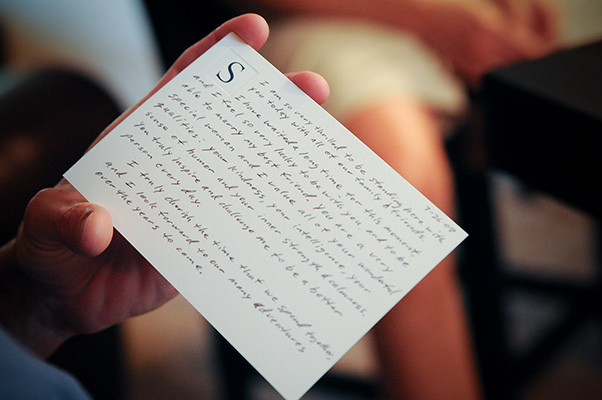 S
am so very thrilled to be standing here with
you today with all of our family & friends
I have waited a long time for this moment,
and I feel so very lucky to be with you and to be
able to marry my best friend. You are a very
special woman and I value all of your wonderful
qualities: your kindness, your intelligence, your
sense of humor and your inner strength & calmness.
you truly inspire and challenge me to be a better
person every day.
I truly cherish the time that we spend together,
and I look forward to our many adventures
over the years to come.